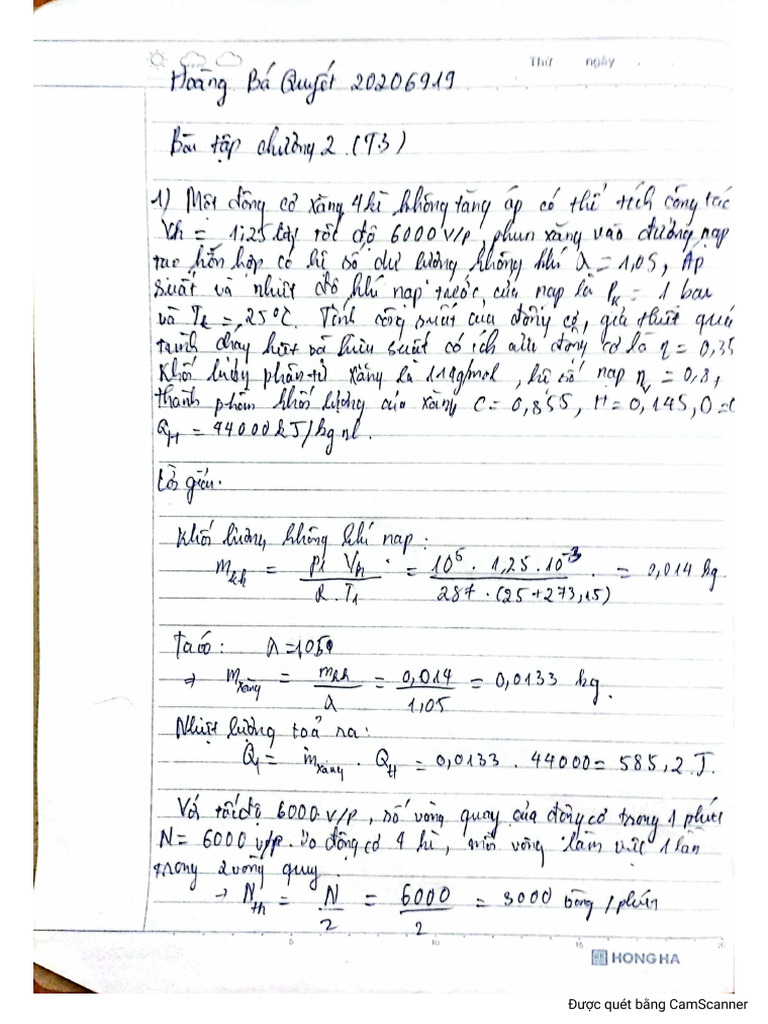 Thứ ngày
Hoàng Bá Quyết 20206919
Bài tập chương 2 (T3)
1) Một động cơ xăng 4 kì không tăng áp có thể tích công tác
Vh = 1,25 lít, tốc độ 6000 v/p, phun xăng vào đường nạp
tạo hỗn hợp có hệ số dư lượng không khí λ = 1,05, Áp
suất và nhiệt độ khí nạp trước cửa nạp là Pk = 1 bar
và Tk = 25°C. Tính công suất của động cơ, giả thiết quá
trình cháy hết và hiệu suất có ích của động cơ là η = 0,35
Khối lượng phân tử xăng là 114g/mol, hệ số nạp ηv = 0,8,
thành phần khối lượng của xăng C = 0,855, H = 0,145, O =
QH = 44000 kJ/kg nl.
Lời giải.
Khối lượng không khí nạp:
mkk = P1 Vh / R.T1 = 10^5 . 1,25.10^-3 / 287.(25+273,15) = 0,014 kg
Ta có: λ = 105
⇒ mxăng = mkk / λ = 0,014 / 1,05 = 0,0133 kg.
Nhiệt lượng toả ra:
Q1 = mxăng . QH = 0,0133 . 44000 = 585,2 J.
Với tốc độ 6000 v/p, số vòng quay của động cơ trong 1 phút
N = 6000 v/p. Do động cơ 4 kì, mỗi vòng làm việc 1 lần
trong 2 vòng quay.
→ Nth = N / 2 = 6000 / 2 = 3000 vòng / phút
5 10 15 20
HONG HA
Được quét bằng CamScanner